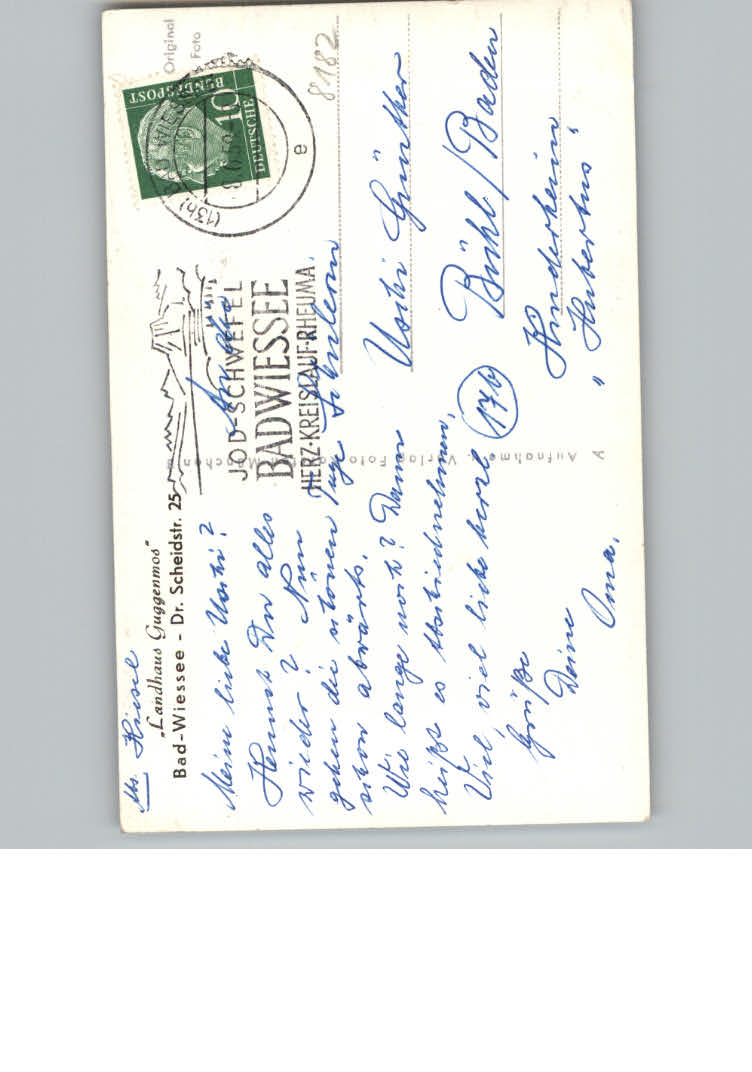 Abs. Kiesel
„Landhaus Guggenmos"
Bad-Wiessee - Dr. Scheidstr. 25
Meine liebe Uschi!
Kennst Du alles
wieder? Nun
gehen die schönen Tage
schon abwärts.
Wie lange noch? Dann
heißt es Abschiednehmen.
Viel, viel liebe herzl.
Grüße
Deine
Oma.
Original
Foto
8182
DEUTSCHE
BUNDESPOST
10
(13b) BAD WIESSEE
e
JOD-SCHWEFEL
BAD WIESSEE
HERZ·KREISLAUF·RHEUMA
An die
Schülerin
Uschi Günther
(17b) Bühl/Baden
Kinderheim
„Hubertus"
Aufnahme u. Verlag Foto